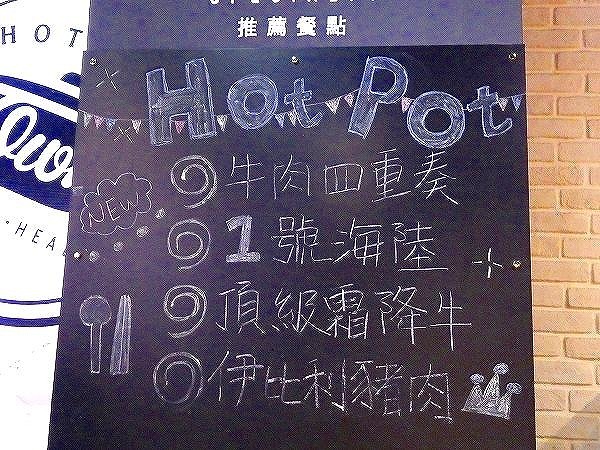 推薦餐點
HOT
Hot Pot
牛肉四重奏
NEW
1號海陸
HEAL
頂級霜降牛
伊比利豬肉